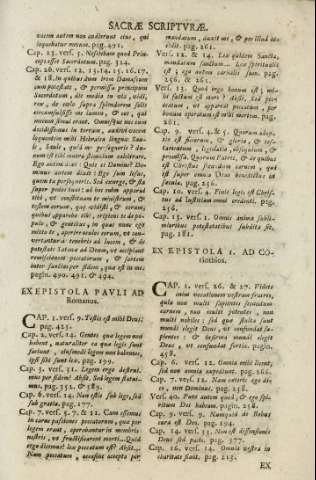 SACRÆ SCRIPTURÆ.
autem autem non audierunt eius, qui
loquebatur mecum. pag. 491.
Cap. 23. vers. 5. Nesciebam quod Prin-
ceps esset Sacerdotum. pag. 324.
Cap. 26. vers. 12. 13. 14. 15. 16. 17.
& 18. In quibus dum irem Damascum
cum potestate, & permissu principum
Sacerdotum, die media in via, vidi,
rex, de cœlo supra splendorem solis
circumfulsisse me lumen, & eos, qui
mecum simul erant. Omnesque nos cum
decidissemus in terram, audivi vocem
loquentem mihi Hebraica lingua: Sau-
le, Saule, quid me persequeris? du-
rum est tibi contra stimulum calcitrare.
Ego autem dixi: Quis es Domine? Do-
minus autem dixit: Ego sum Iesus,
quem tu persequeris. Sed exurge, & sta
super pedes tuos: ad hoc enim apparui
tibi, ut constituam te ministrum, &
testem eorum, quæ vidisti, & eorum,
quibus apparebo tibi, eripiens te de po-
pulo, & gentibus, in quas nunc ego
mitto te, aperire oculos eorum, ut con-
vertantur à tenebris ad lucem, & de
potestate Satanæ ad Deum, ut accipiant
remissionem peccatorum, & sortem
inter sanctos per fidem, quæ est in me.
pagin. 490. 491. & 494.
EX EPISTOLA PAULI AD
Romanos.
CAP. 1. vers. 9. Testis est mihi Deus.
pag. 425.
Cap. 2. vers. 14. Gentes quæ legem non
habent, naturaliter ea quæ legis sunt
faciunt, eiusmodi legem non habentes,
ipsi sibi sunt lex. pag. 199.
Cap. 3. vers. 31. Legem ergo destrui-
mus per fidem? Absit, sed legem statui-
mus. pag. 355. & 385.
Cap. 6. vers. 14. Non estis sub lege, sed
sub gratia. pag. 177.
Cap. 7. vers. 5. 7. & 11. Cum essemus
in carne passiones peccatorum, quæ per
legem erant, operabantur in membris
nostris, ut fructificarent morti... Quid
ergo dicemus? lex peccatum est? Absit...
Nam peccatum, occasione accepta per
mandatum, seduxit me, & per illud oc-
cidit. pag. 261.
Vers. 12. & 14. Lex quidem Sancta,
mandatum sanctum... Lex spiritualis
est; ego autem carnalis sum. pag.
256. & 261.
Vers. 13. Quod ergo bonum est; mi-
hi factum est mors? Absit, sed pec-
catum, ut appareat peccatum, per
bonum operatum est mihi mortem. pag.
261.
Cap. 9. vers. 4. & 5. Quorum adop-
tio est filiorum, & gloria, & tes-
tamentum, legislatio, obsequium, &
promissa. Quorum Patres, & ex quibus
est Christus secundum carnem, qui
est super omnia Deus benedictus in
sæcula. pag. 456.
Cap. 10. vers. 4. Finis legis est Chris-
tus ad Iustitiam omni credenti. pag.
256.
Cap. 13. vers. 1. Omnis anima subli-
mioribus potestatibus subdita sit.
pag. 181.
EX EPISTOLA I. AD CO-
rinthios.
CAP. 1. vers. 26. & 27. Videte
enim vocationem vestram fratres,
quia non multi sapientes secundum
carnem, non multi potentes, non
multi nobiles; sed quæ stulta sunt
mundi elegit Deus, ut confundat sa-
pientes: & infirma mundi elegit
Deus, ut confundat fortia. pagin.
458.
Cap. 6. vers. 12. Omnia mihi licent,
sed non omnia expediunt. pag. 266.
Cap. 7. vers. 12. Nam cæteris ego di-
co, non Dominus. pag. 258.
Vers. 40. Puto autem quod, & ego spi-
ritum Dei habeam. pagin. 258.
Cap. 9. vers. 9. Numquid de Bobus
cura est Deo. pag. 194.
Cap. 14. vers. 33. Non est dissensionis
Deus sed pacis. pag. 377.
Cap. 16. vers. 14. Omnia vestra in
charitate fiant. pag. 215.
EX